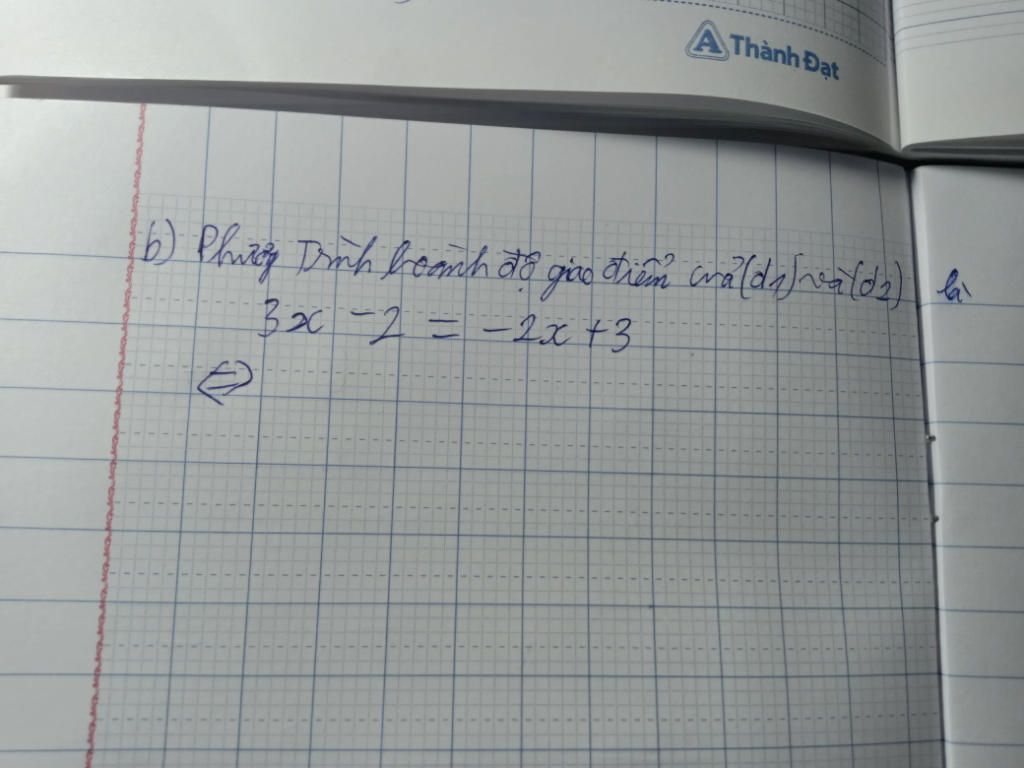 A Thành Đạt
b) Phương Trình hoành độ giao điểm của (d1) và (d2) là
3x - 2 = -2x + 3
⇔